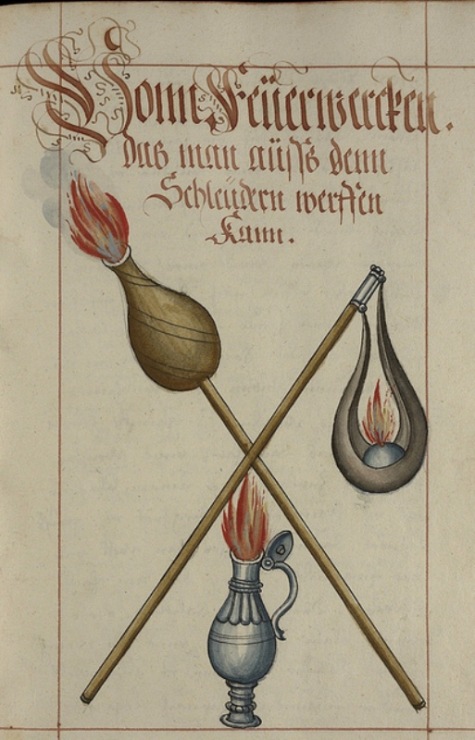 Vonn Feüerwercken.
Das man aüss denn
Schleüdern werffen
Kann.